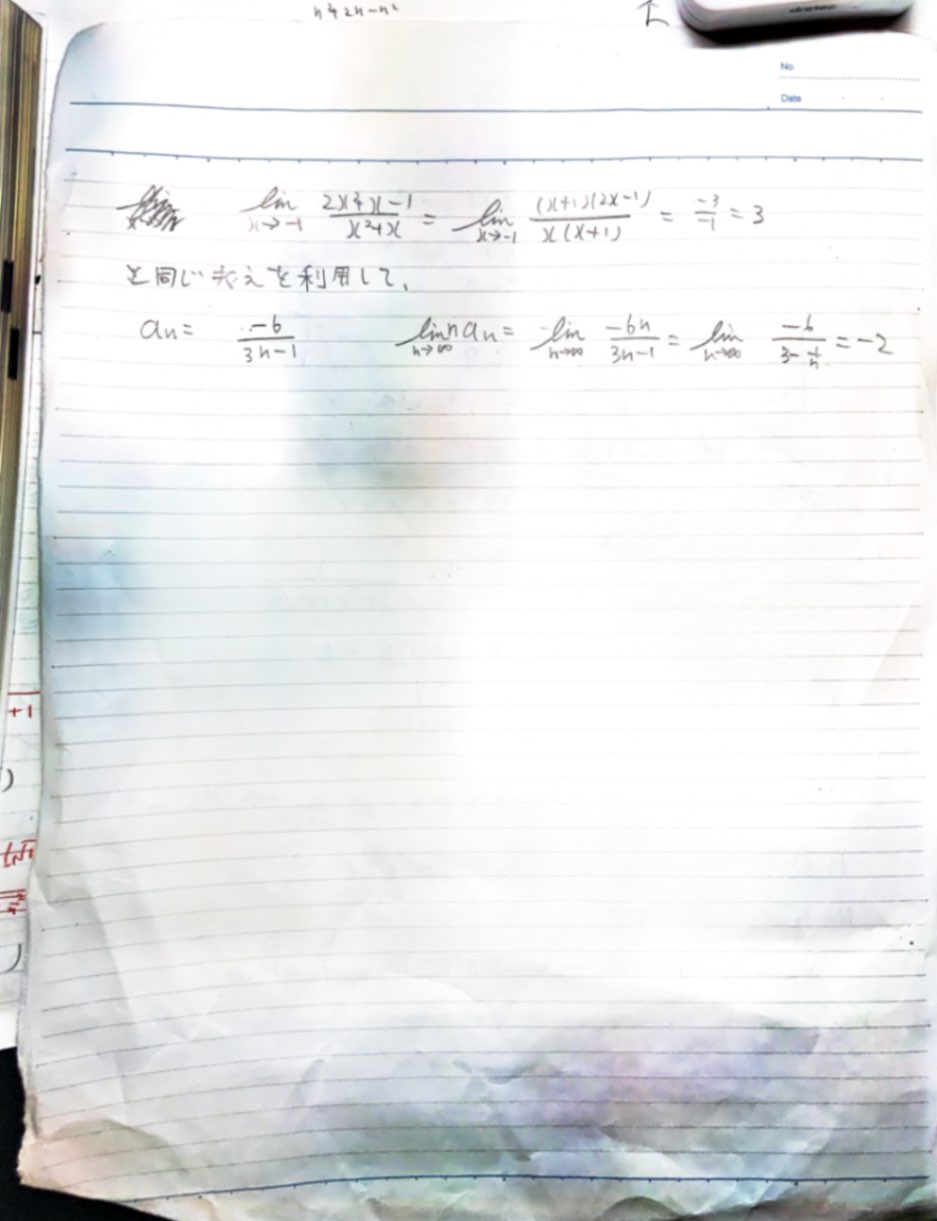 n²+2n-n²
No.
Date
lim x→-1 (2x²+x-1)/(x²+x) = lim x→-1 (x+1)(2x-1)/x(x+1) = -3/-1 = 3
と同じ考えを利用して、
an = -6/(3n-1) lim n→∞ n an = lim n→∞ -6n/(3n-1) = lim n→∞ -6/(3-1/n) = -2
+1
)
)